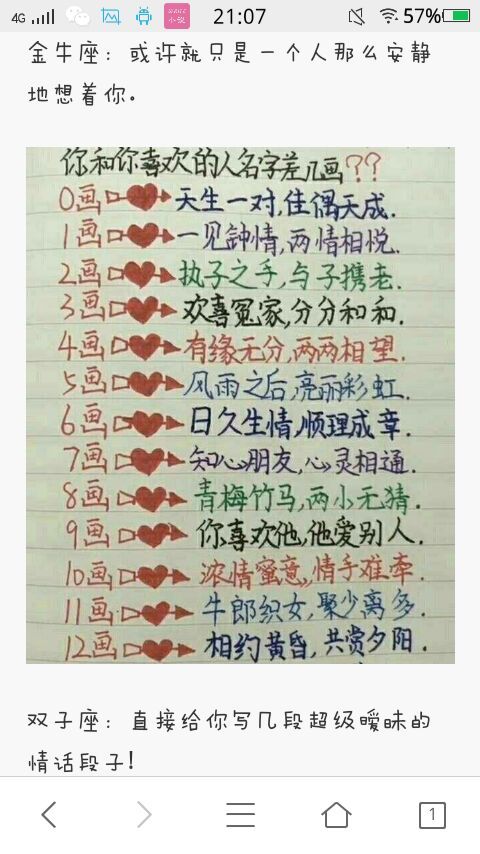 4G 21:07 57%
金牛座：或许就只是一个人那么安静
地想着你。
你和你喜欢的人名字差几画??
0画 天生一对,佳偶天成.
1画 一见钟情,两情相悦.
2画 执子之手,与子携老.
3画 欢喜冤家,分分和和.
4画 有缘无分,两两相望.
5画 风雨之后,亮丽彩虹.
6画 日久生情,顺理成章.
7画 知心朋友,心灵相通.
8画 青梅竹马,两小无猜.
9画 你喜欢他,他爱别人.
10画 浓情蜜意,情手难牵.
11画 牛郎织女,聚少离多.
12画 相约黄昏,共赏夕阳.
双子座：直接给你写几段超级暧昧的
情话段子!
1